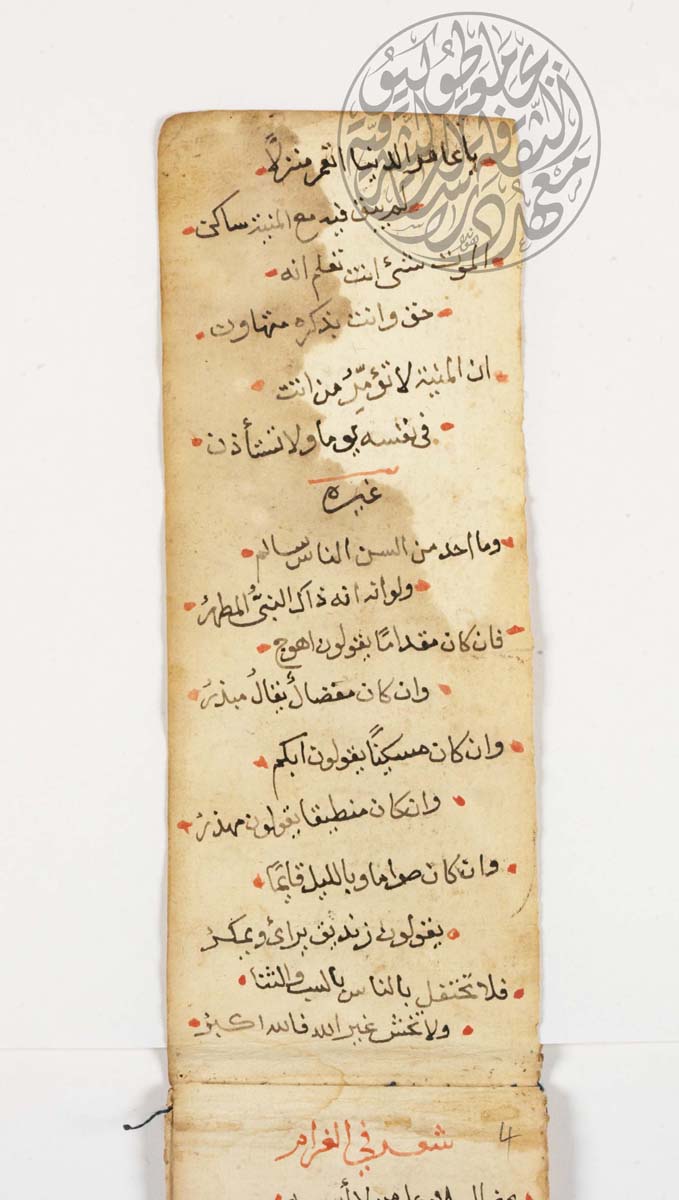 يا عامر الدنيا اتعمر منزلا
لم يبق فيه مع المنية ساكن
الموت شئ انت تعلم انه
حق وانت بذكره متهاون
ان المنية لا تؤمِّرُ من اتت
في نفسه يوما ولا تستأذن
غيره
وما احد من السن الناس سالم
ولو انه انه ذاك النبيُّ المطهرُ
فان كان مقدامًا يقولون اهوج
وان كان مفضالً يقالُ مبذرُ
وان كان مسكينًا يقولون ابكم
وان كان منطيقا يقولون مهذرُ
وان كان صواما وبالليل قايمًا
يقولون زنديق يرائ ويمكرُ
فلا تحتفل بالناس بالسب والثنا
ولا تخش غير الله فالله اكبرُ
4
شعر في الغرام